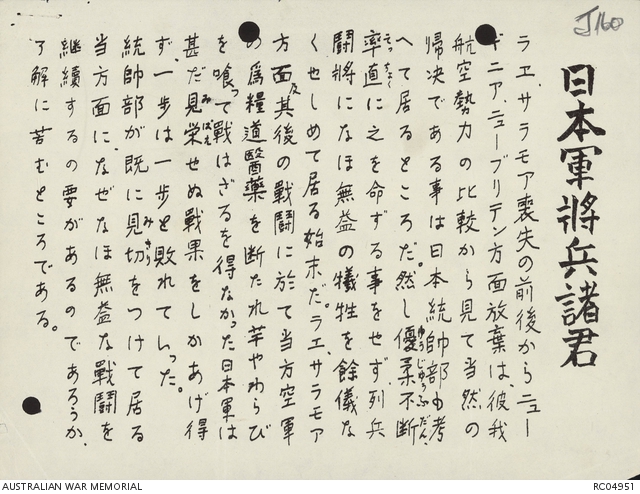 J160
日本軍將兵諸君
ラエ、サラモア喪失の前後からニュー
ギニア、ニューブリテン方面放棄は、彼我
航空勢力の比較から見て当然の
帰決である事は日本統帥部も考
へて居るところだ。然し優柔不断
ゆうじゅうふだん
率直に之を命ずる事をせず、列兵
そっちょく
闘將になほ無益の犠牲を餘儀な
くせしめて居る始末だ。ラエ、サラモア
方面及其後の戰鬪に於て当方空軍
の爲糧道醫藥を断たれ芋やわらび
を喰って戰はざるを得なかった日本軍は
甚だ見栄せぬ戰果をしかあげ得
みばえ
ず、一歩は一歩と敗れていった。
統帥部が既に見切をつけて居る
みきり
当方面に、なぜなほ無益な戰鬪を
継續するの要があるのであろうか、
了解に苦むところである。
AUSTRALIAN WAR MEMORIAL
RC04951